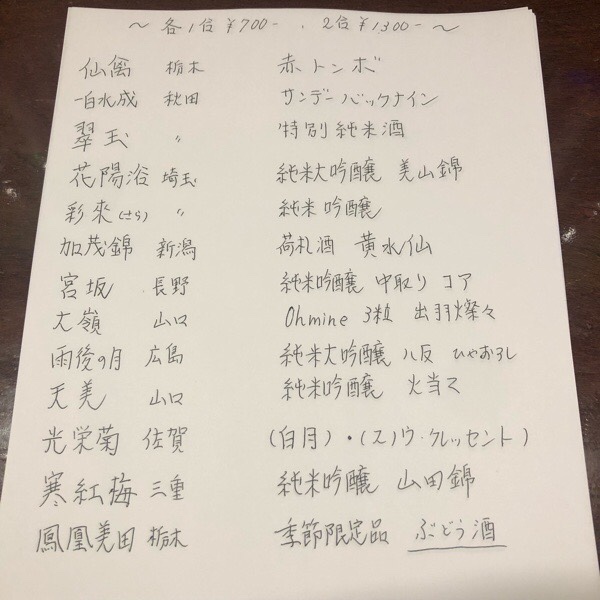 ～ 各1合 ¥700- . 2合 ¥1300- ～
仙禽 栃木 赤トンボ
一白水成 秋田 サンデーバックナイン
翠玉 〃 特別純米酒
花陽浴 埼玉 純米大吟醸 美山錦
彩來(さら) 〃 純米吟醸
加茂錦 新潟 荷札酒 黄水仙
宮坂 長野 純米吟醸 中取り コア
大嶺 山口 Ohmine 3粒 出羽燦々
雨後の月 広島 純米大吟醸 八反 ひやおろし
天美 山口 純米吟醸 火当て
光栄菊 佐賀 (白月)・(スノウ・クレッセント)
寒紅梅 三重 純米吟醸 山田錦
鳳凰美田 栃木 季節限定品 ぶどう酒